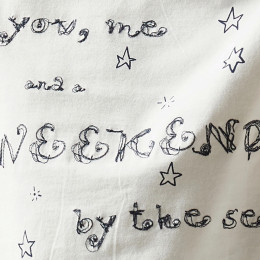 you, me
and a
WEEKEND
by the se